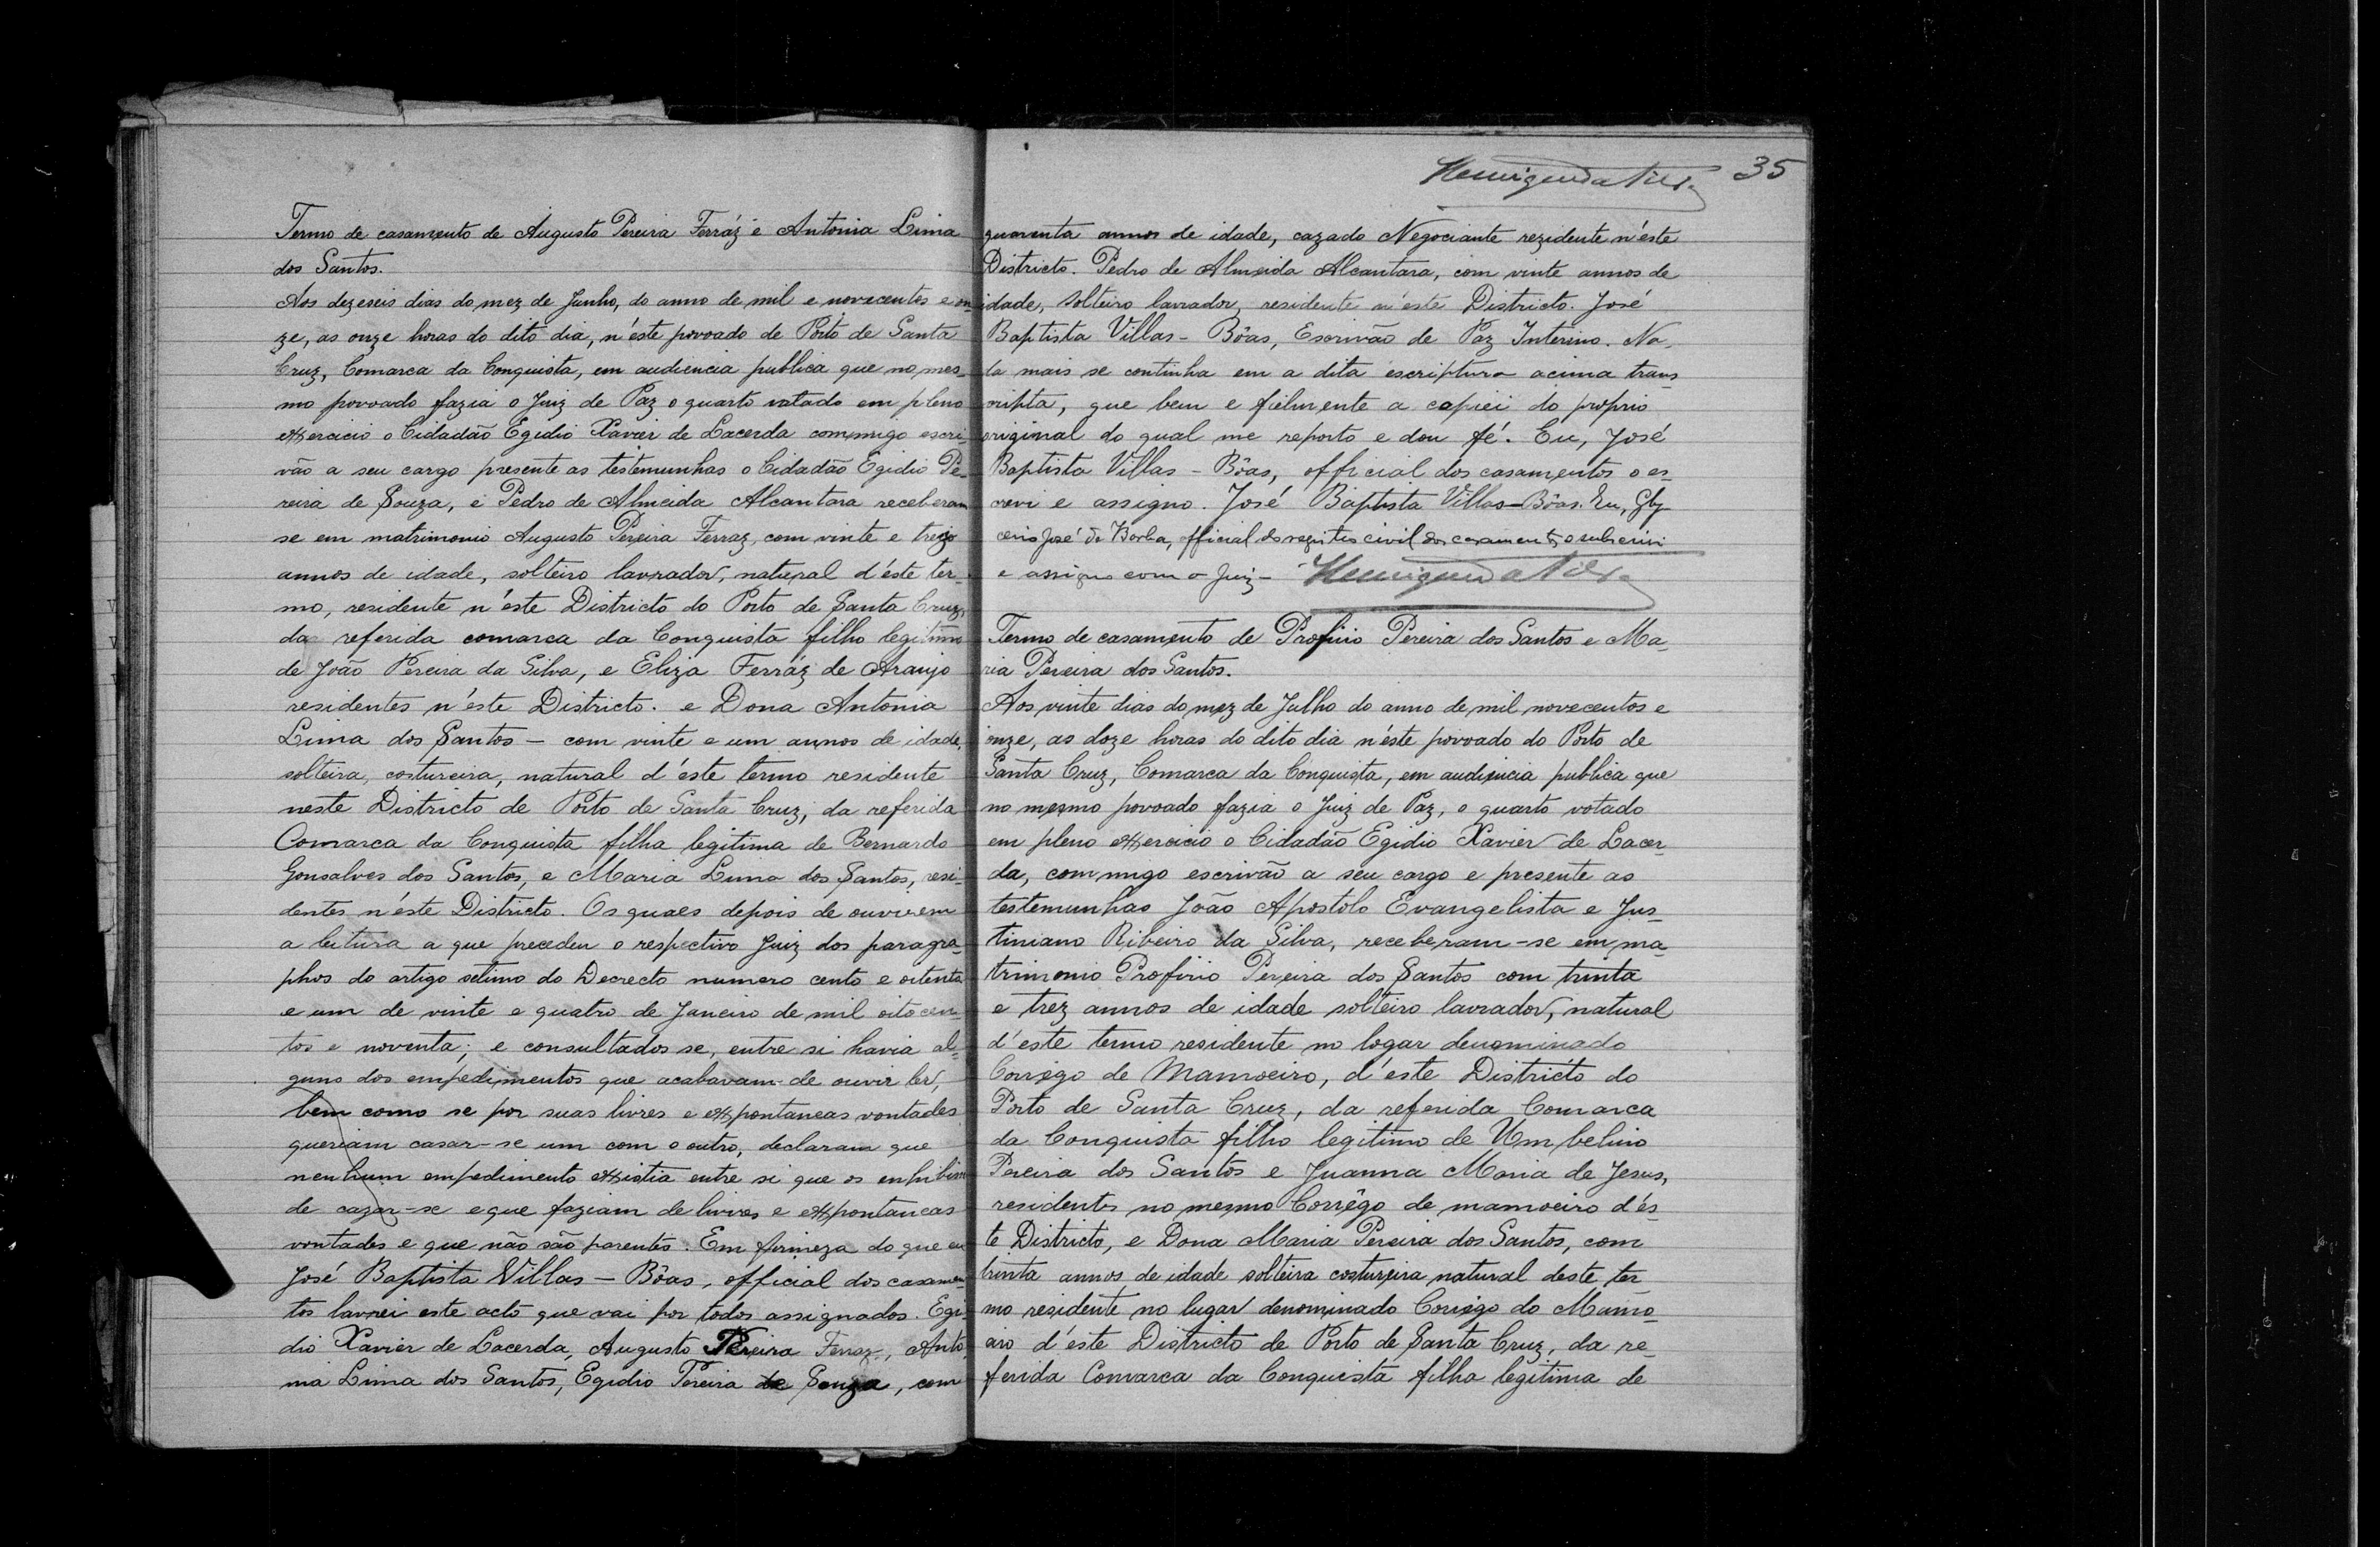 Termo de casamento de Augusto Pereira Ferráz e Antonia Lima
dos Santos.
Aos dezeseis dias do mez de Junho, do anno de mil e novecentos e on-
ze, as onze horas do dito dia, n'éste povoado de Porto de Santa
Cruz, Comarca da Conquista, em audiencia publica que no mes-
mo povoado fazia o Juiz de Paz o quarto votado em pleno
exercicio o Cidadão Egidio Xavier de Lacerda commigo escri-
vão a seu cargo presente as testemunhas o Cidadão Egidio Pe-
reira de Souza, e Pedro de Almeida Alcantara receberam
se em matrimonio Augusto Pereira Ferraz, com vinte e
annos de idade, solteiro lavrador, natural d'éste ter-
mo, residente n'éste Districto do Porto de Santa Cruz,
da referida comarca da Conquista filho legitimo
de João Pereira da Silva, e Eliza Ferráz de Araujo
residentes n'éste Districto. e Dona Antonia
Lima dos Santos - com vinte e um annos de idade,
solteira, costureira, natural d'éste termo residente
neste Districto de Porto de Santa Cruz, da referida
Comarca da Conquista filha legitima de Bernardo
Gonsalves dos Santos, e Maria Lima dos Santos, resi-
dentes n'éste Districto. Os quaes depois de ouvirem
a leitura a que preceder o respectivo Juiz dos paragra-
phos do artigo setimo do Decrecto numero cento e oitenta
e um de vinte e quatro de Janeiro de mil oitocen-
tos e noventa; e consultados se, entre si havia al-
guns dos empedimentos que acabavam de ouvir ler,
bem como se por suas livres e expontaneas vontades
queriam casar-se um com o outro, declaram que
nenhum empedimento existia entre si que os
de cazar-se e que faziam de livres e expontaneas
vontades e que não são parentes. Em firmeza do que eu
José Baptista Villas - Bôas, official dos casamen-
tos lavrei este acto que vai por todos assignados. Egi-
dio Xavier de Lacerda, Augusto Pereira Ferraz, Anto-
nia Lima dos Santos, Egidio Pereira de Souza, com
35
quarenta annos de idade, cazado Negociante rezidente n'éste
Districto. Pedro de Almeida Alcantara, com vinte annos de
idade, solteiro lavrador, residente n'éste Districto. José
Baptista Villas - Bôas, Escrivão de Paz Interino. Na-
da mais se continha em a dita escriptura acima trans-
cripta, que bem e fielmente a copiei do proprio
original do qual me reporto e dou fé. Eu, José
Baptista Villas - Bôas, official dos casamentos o es-
crevi e assigno. José Baptista Villas-Bôas. Eu, Gly-
cerio José de Borba, official do registro civil dos casamentos o subscrivi
e assigno com o Juiz -
Termo de casamento de Profirio Pereira dos Santos e Ma-
ria Pereira dos Santos.
Aos vinte dias do mez de Julho do anno de mil novecentos e
onze, as doze horas do dito dia n'éste povoado do Porto de
Santa Cruz, Comarca da Conquista, em audiencia publica que
no mesmo povoado fazia o Juiz de Paz, o quarto votado
em pleno exercicio o Cidadão Egidio Xavier de Lacer-
da, commigo escrivão a seu cargo e presente as
testemunhas João Apostolo Evangelista e Jus-
tiniano Ribeiro da Silva, receberam-se em ma-
trimonio Profirio Pereira dos Santos com trinta
e trez annos de idade solteiro lavrador, natural
d'este termo residente no logar denominado
Corrego de Mamoeiro, d'éste Districto do
Porto de Santa Cruz, da referida Comarca
da Conquista filho legitimo de Umbelino
Pereira dos Santos e Juanna Maria de Jesus,
residentes no mesmo Corrêgo de mamoeiro d'és-
te Districto, e Dona Maria Pereira dos Santos, com
trinta annos de idade solteira costureira natural deste ter-
mo rezidente no lugar denominado Corrêgo do Mamo-
eiro d'éste Districto de Porto de Santa Cruz, da re-
ferida Comarca da Conquista filha legitima de